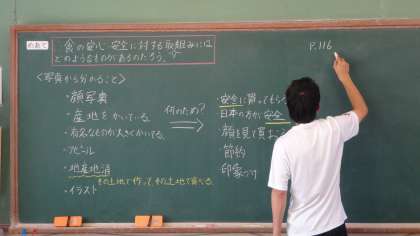 めあて 食の安心・安全に対する取組みには
どのようなものがあるのだろう。
P.116
<写真から分かること>
・顔写真
・産地をかいている。
・有名なものが大きくかいてる。
・アピール
・地産地消
その土地で作って、その土地で食べる。
・イラスト
何のため?
・安全に買ってもらう
日本の方が安全
・顔を見て買おう
・節約
・印象づけ